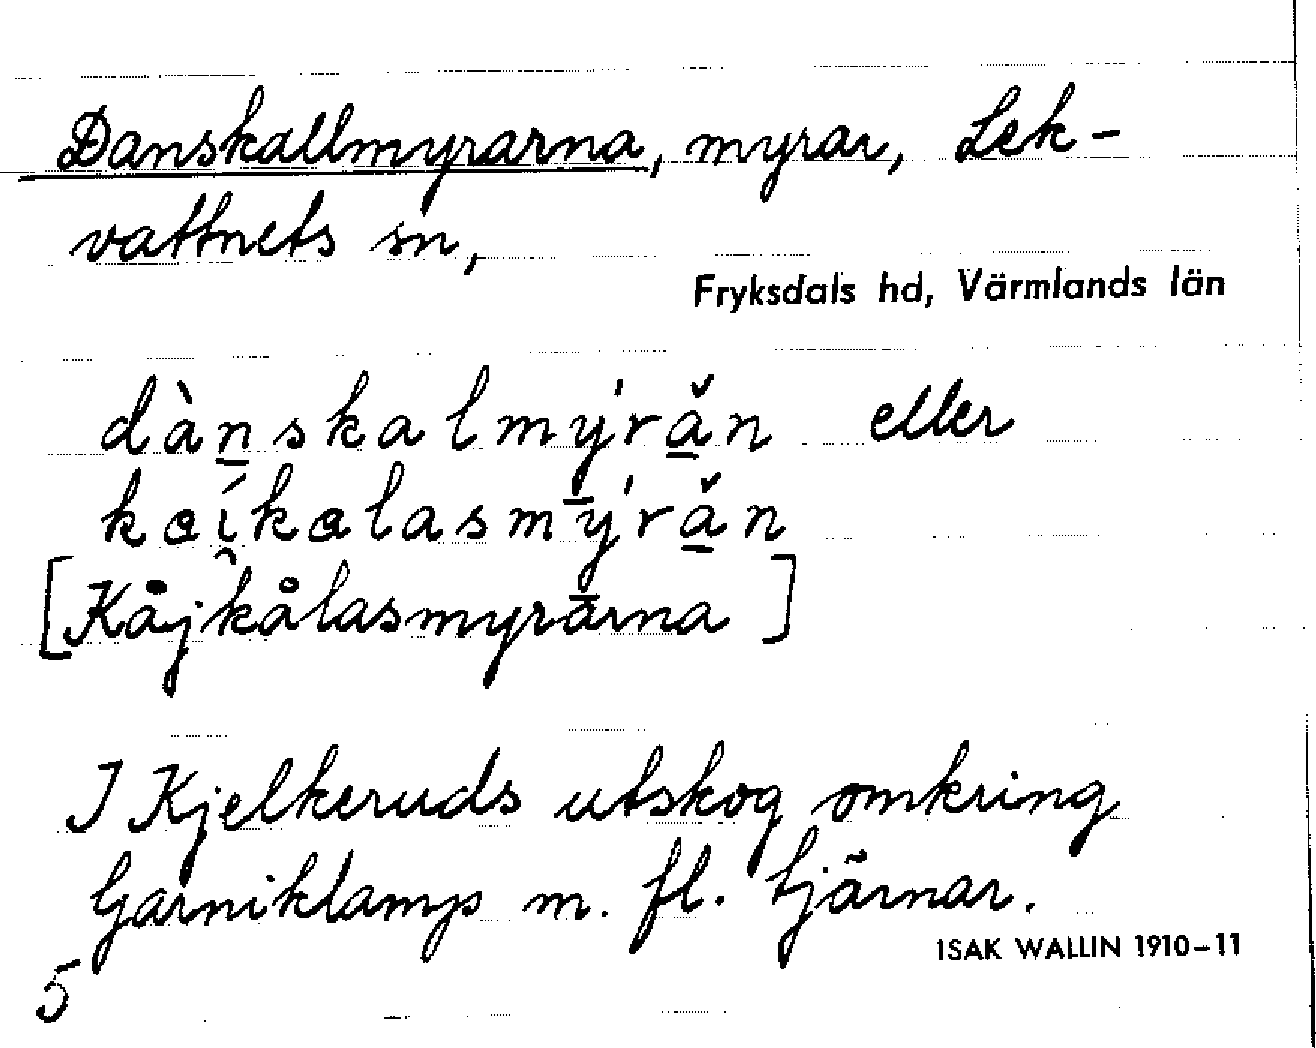 Danskallmyrarna, myrar, Lek-
vattnets sn,
Fryksdals hd, Värmlands län
dànskalmy̍rǎn eller
kɑíkɑlasmy̍rǎn
[Kåjkålasmyrarna]
I Kjelkeruds utskog omkring
Garniklamp m. fl. tjärnar.
ISAK WALLIN 1910-11
5